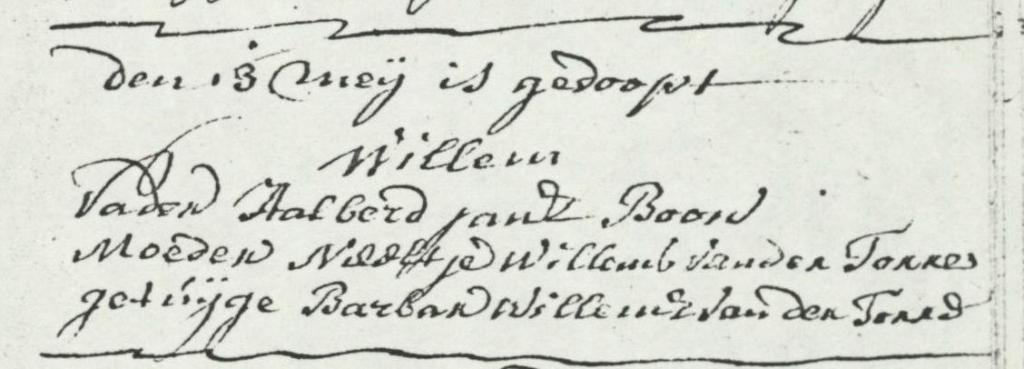 den 13 Meij is gedoopt
Willem
Vader Halberd jansz Boon
Moeder Neeltje Willems van der Torre
getuijge Barbar Willems van der Torre